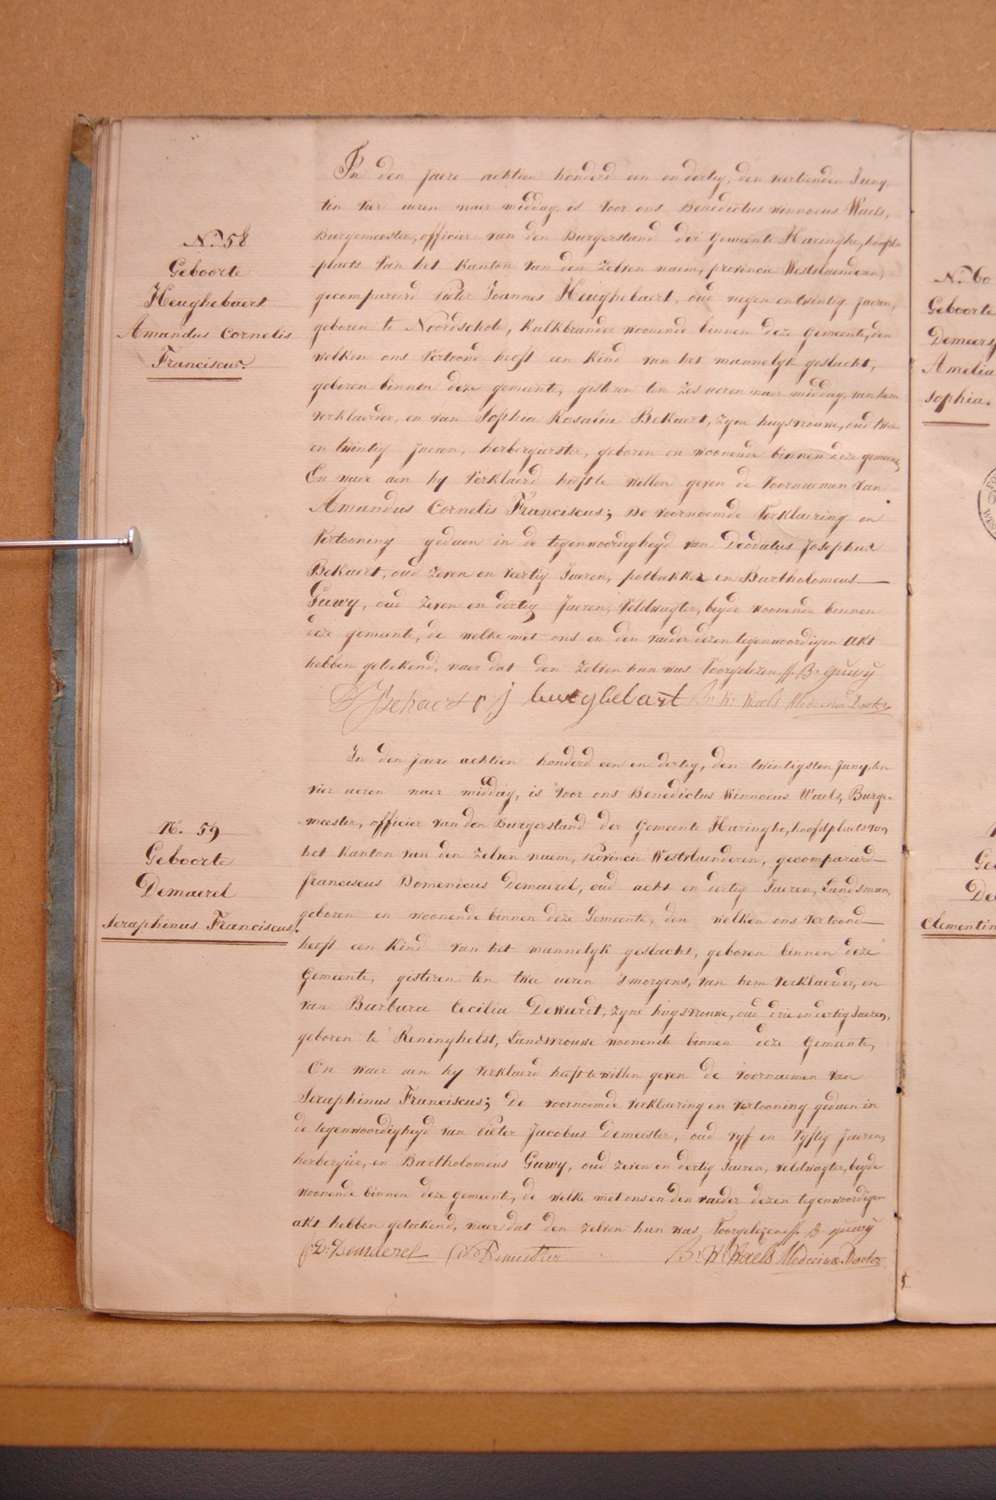 N.º 58
Geboorte
Heughebaert
Amandus Cornelis
Franciscus.
In den jaere achtien honderd een en dertig, den veertienden Juny
ten vier ueren naer middag, is voor ons Benedictus Winnocus Waels,
Burgemeester, officier van den Burgerstand der Gemeente Haringhe, hoofd
plaets van het Kanton van den zelven naem, provincie Westvlaenderen,
gecompareerd Pieter Joannes Heughebaert, oud negen en twintig jaeren,
geboren te Noordschote, Kalkbrander woonende binnen deze Gemeente, den
welken ons vertoond heeft een Kind van het mannelyk geslacht,
geboren binnen deze gemeente, gisteren ten zes ueren naer middag, van hem
verklaerder, en van Sophia Rosalia Bekaert, zyne huysvrouwe, oud twee
en twintig jaeren, herbergierster, geboren en woonende binnen deze gemeente,
En waer aen hy verklaerd heeft te willen geven de voornaemen van
Amandus Cornelis Franciscus; De voornoemde verklaering en
vertooning gedaen in de tegenwoordigheyd van Deodatus Josephus
Bekaert, oud zeven en veertig Jaeren, potbakker en Bartholomeus
Guwy, oud zeven en dertig Jaeren, veldwagter, beyde woonende binnen
deze gemeente, de welke met ons en den vaeder dezen tegenwoordigen akt
hebben geteekend, naer dat den zelven hun was voorgelezen B. guwy
D J Bekaert p j heughebaert B. W. Waels Medecine Doctor
N. 59
Geboorte
Demaerel
Seraphinus Franciscus.
In den jaere achtien honderd een en dertig, den twintigsten Juny, ten
vier ueren naer middag, is voor ons Benedictus Winnocus Waels, Burge-
meester, officier van den Burgerstand der Gemeente Haringhe, hoofdplaets van
het Kanton van den zelven naem, provincie Westvlaenderen, gecompareerd
franciscus Domenicus Demaerel, oud acht en dertig Jaeren, Landsman,
geboren en woonende binnen deze Gemeente, den welken ons vertoond
heeft een Kind van het mannelyk geslacht, geboren binnen deze
Gemeente, gisteren ten twee ueren 's morgens, van hem verklaerder, en
van Barbara Cecilia Dewerdt, zyne huysvrouwe, oud drie en dertig Jaeren,
geboren te Reninghelst, Landsvrouwe woonende binnen deze Gemeente,
En waer aen hy verklaerd heeft te willen geven de voornaemen van
Seraphinus Franciscus; De voornoemde verklaering en vertooning gedaen in
de tegenwoordigheyd van Pieter Jacobus Demeester, oud vyf en vyftig Jaeren,
herbergier, en Bartholomeus Guwy, oud zeven en dertig Jaeren, veldwagter, beyde
woonende binnen deze gemeente, de welke met ons en den vaeder dezen tegenwoordigen
akt hebben geteekend, naer dat den zelven hun was voorgelezen B. guwy
Demaerel Demeester B. W. Waels Medecine Doctor
N.º 60
Geboorte
Amelia
Sophia.